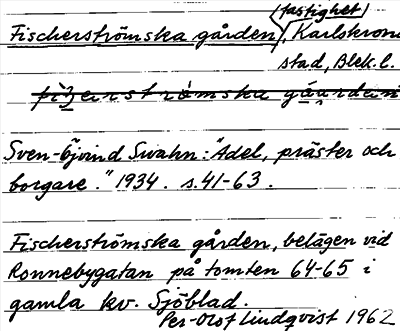 (fastighet)
Fischerströmska gården, Karlskrona
stad, Blek.l.
fiʃerströmska gåarden
Sven-Öjvind Swahn: "Adel, präster och
borgare." 1934. s. 41-63.
Fischerströmska gården, belägen vid
Ronnebygatan på tomten 64-65 i
gamla kv. Sjöblad.
Per-Olof Lindqvist 1962